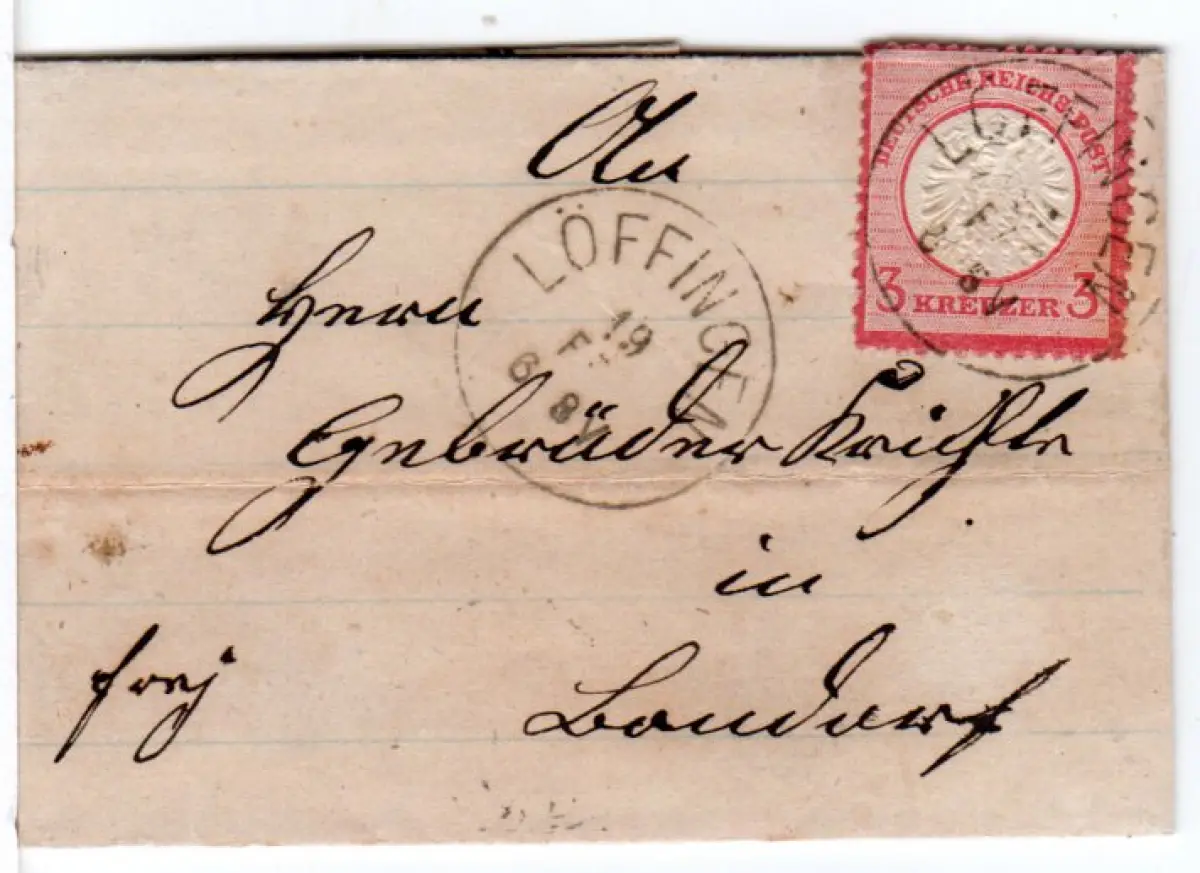 An
DEUTSCHE REICHS-POST
3 KREUZER 3
LÖFFINGEN
LÖFFINGEN
19
F
6 8 V
Herrn
Gebrüder Kriechle
in
frej
Bondorf